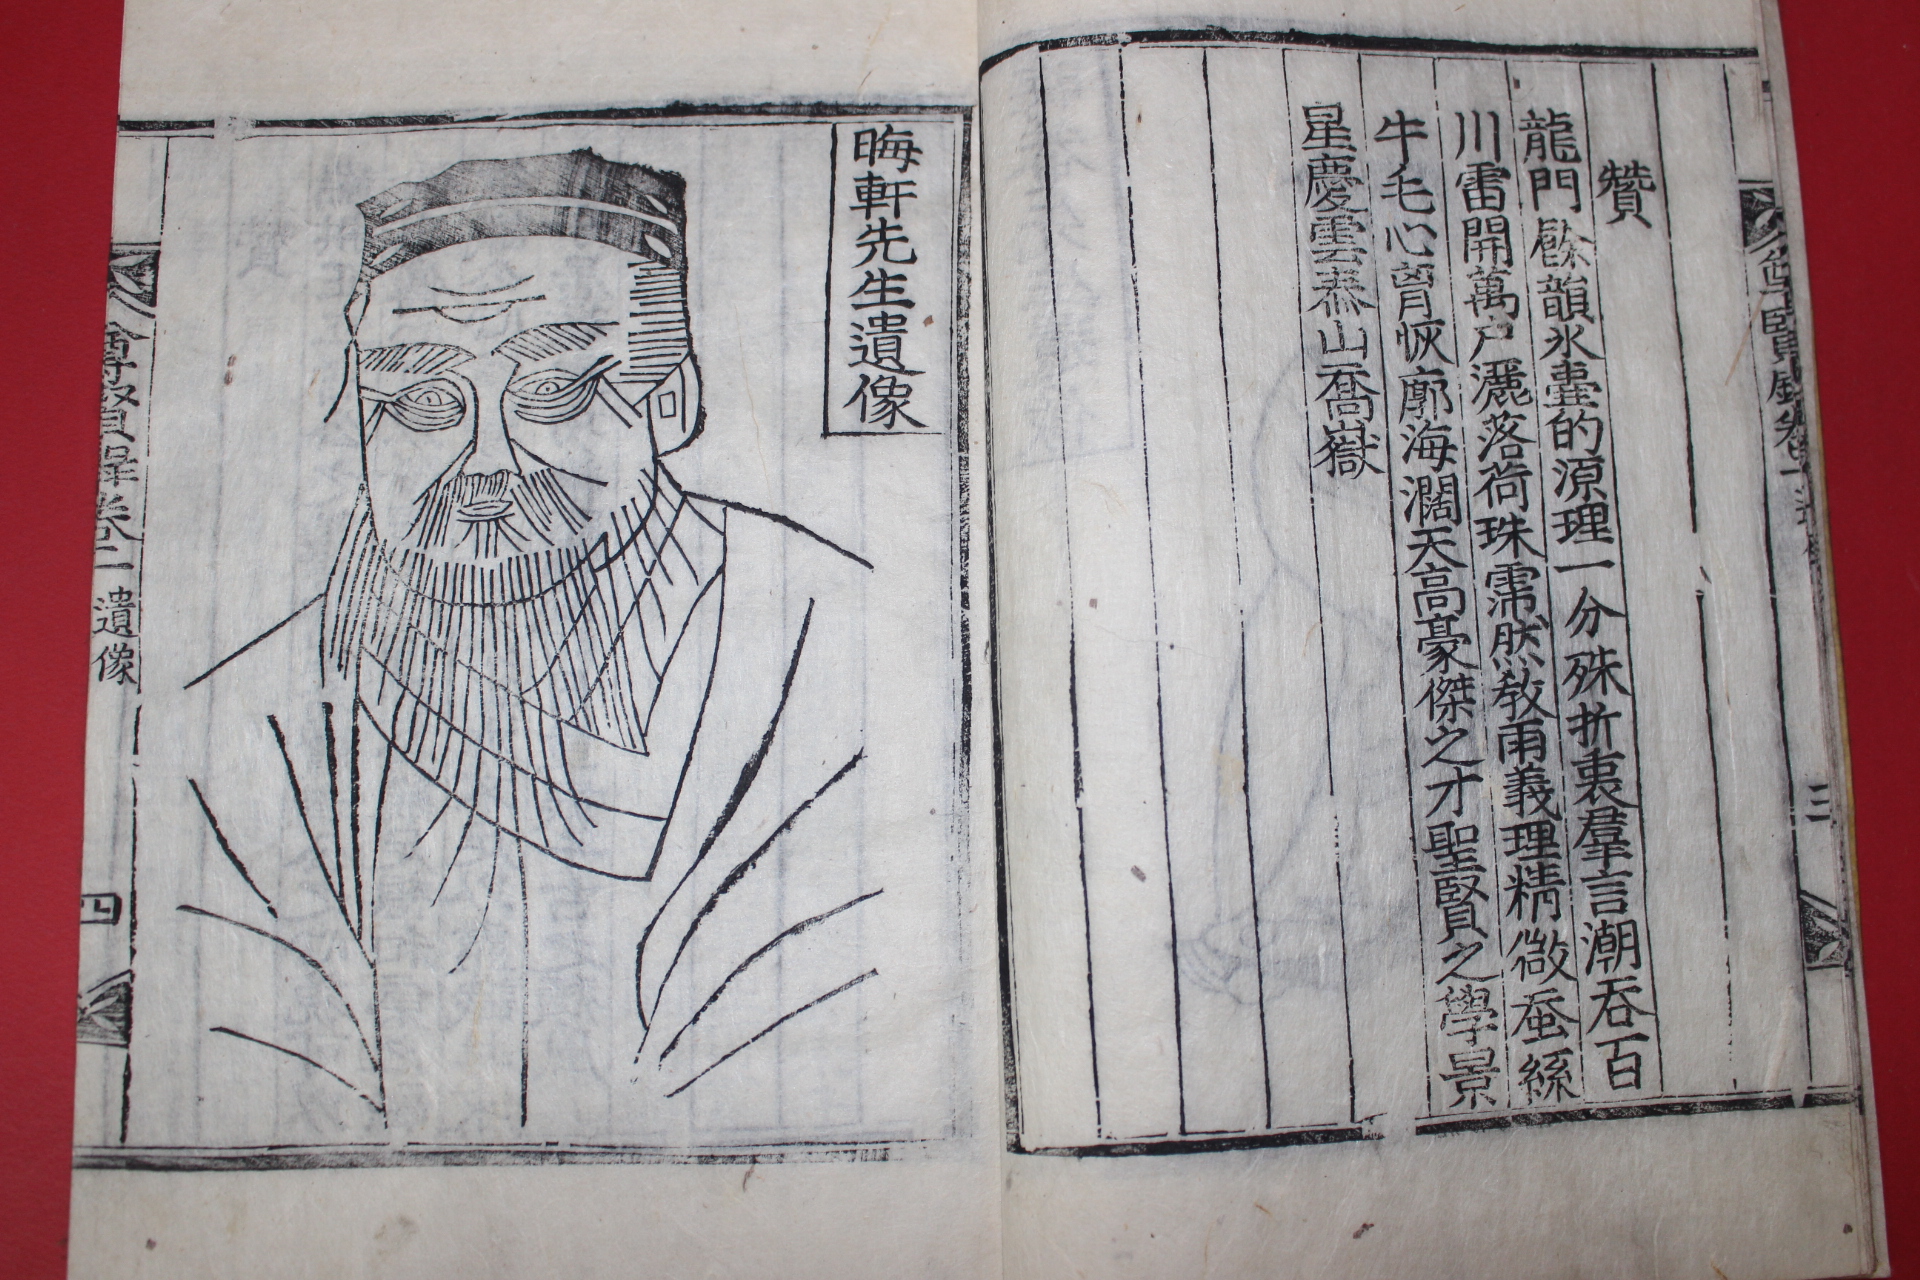 贊
龍門餘韻氷壺的源理一分殊折衷羣言潮呑百
川雷開萬戶灑落荷珠霈然敎雨義理精微蚕絲
牛毛心胷恢廓海濶天高豪傑之才聖賢之學景
星慶雲泰山喬嶽
三
晦軒先生遺像
尊賢錄卷一 遺像
四